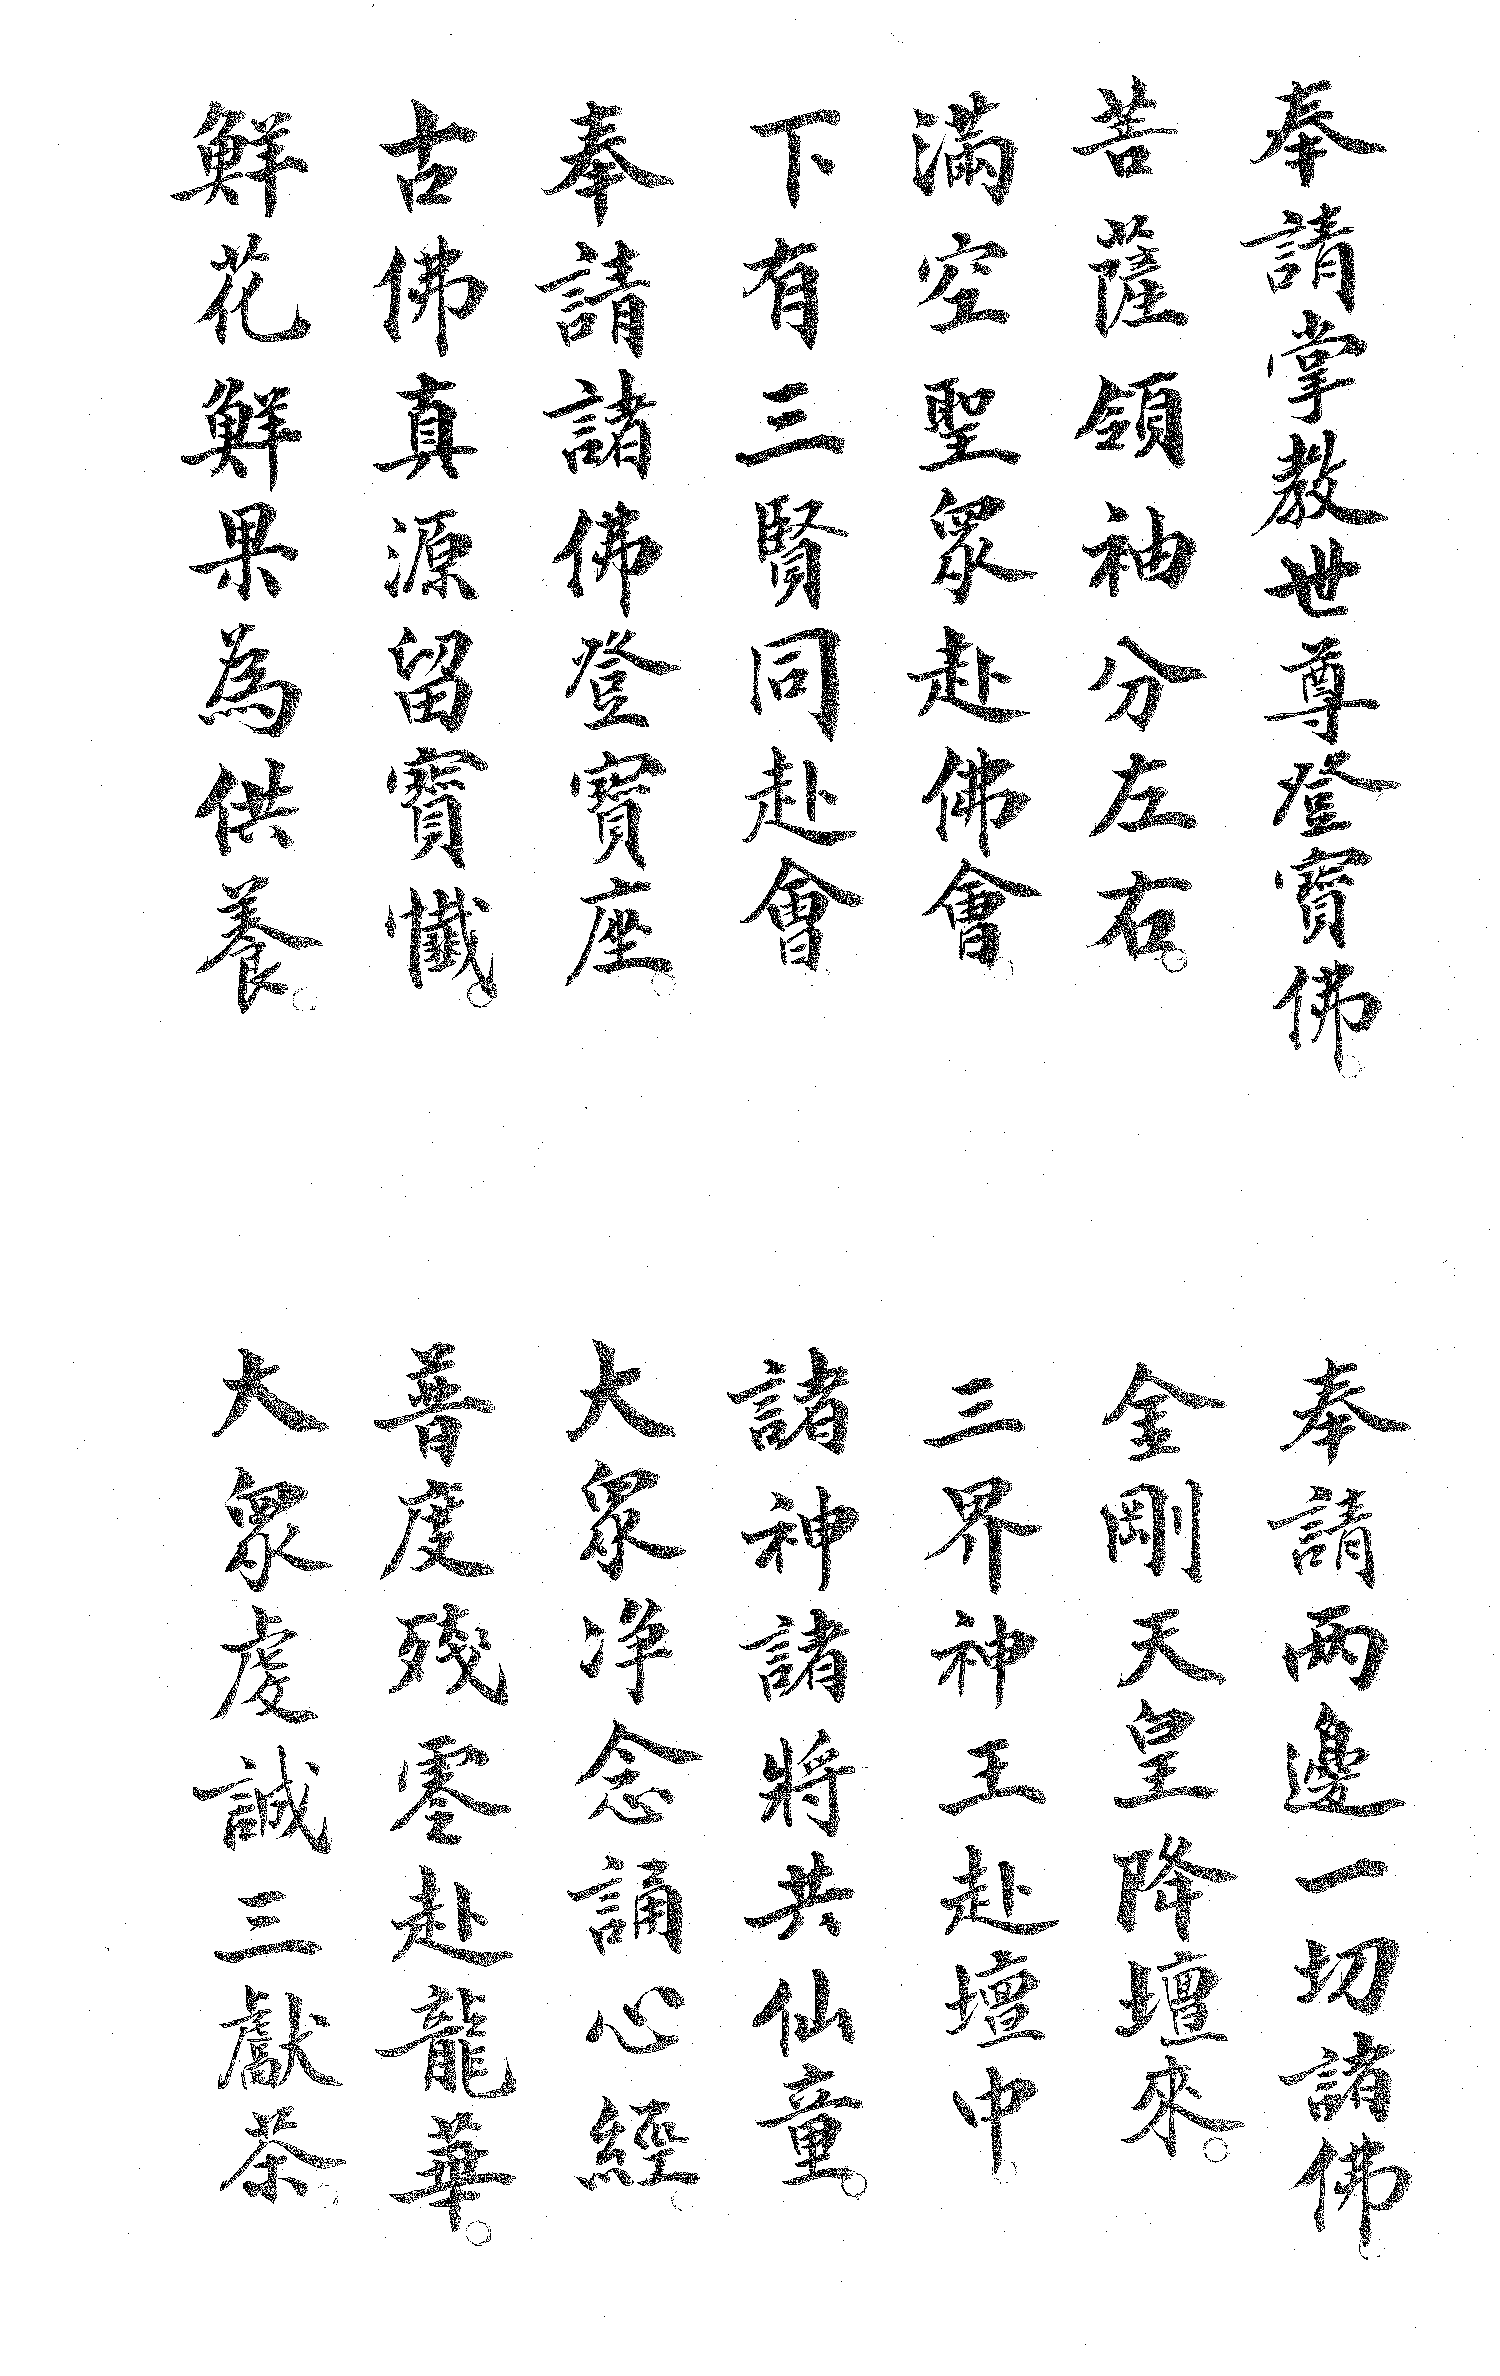 奉請掌教世尊登寶佛。
奉請兩邊一切諸佛。
菩薩領袖分左右。
金剛天皇降壇來。
滿空聖眾赴佛會。
三界神王赴壇中。
下有三賢同赴會。
諸神諸將共仙童。
奉請諸佛登寶座。
大眾净念誦心經。
古佛真源留寶懺。
普度殘零赴龍華。
鮮花鮮果為供養。
大眾虔誠三獻茶。